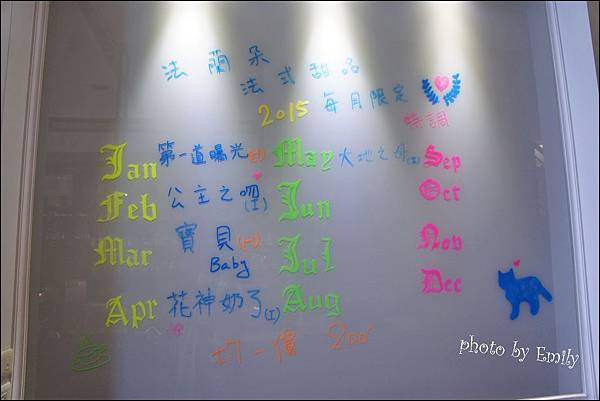 法蘭朵
法式甜品
2015 每月限定
特調
Jan 第一道曙光(H)
Feb 公主之吻(I)
Mar 寶貝(H)
Baby
Apr 花神奶子(I)
May 大地之母(I)
Jun
Jul
Aug
Sep
Oct
Nov
Dec
均一價 200
photo by Emily